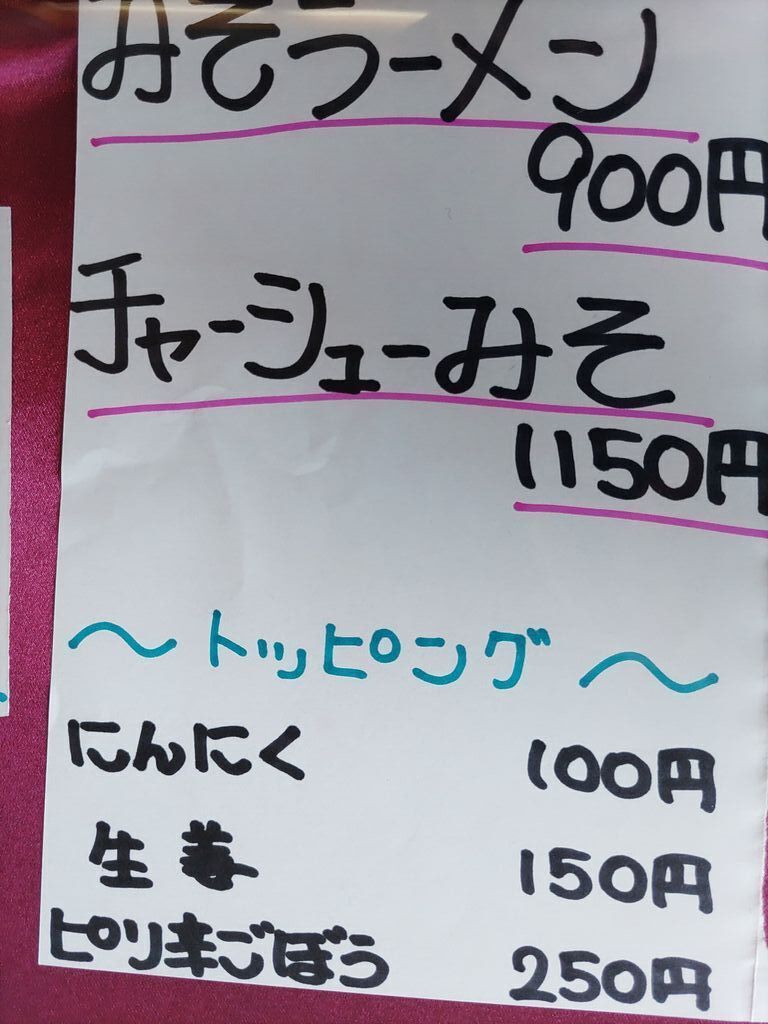 みそラーメン
900円
チャーシューみそ
1150円
〜トッピング〜
にんにく 100円
生姜 150円
ピリ辛ごぼう 250円